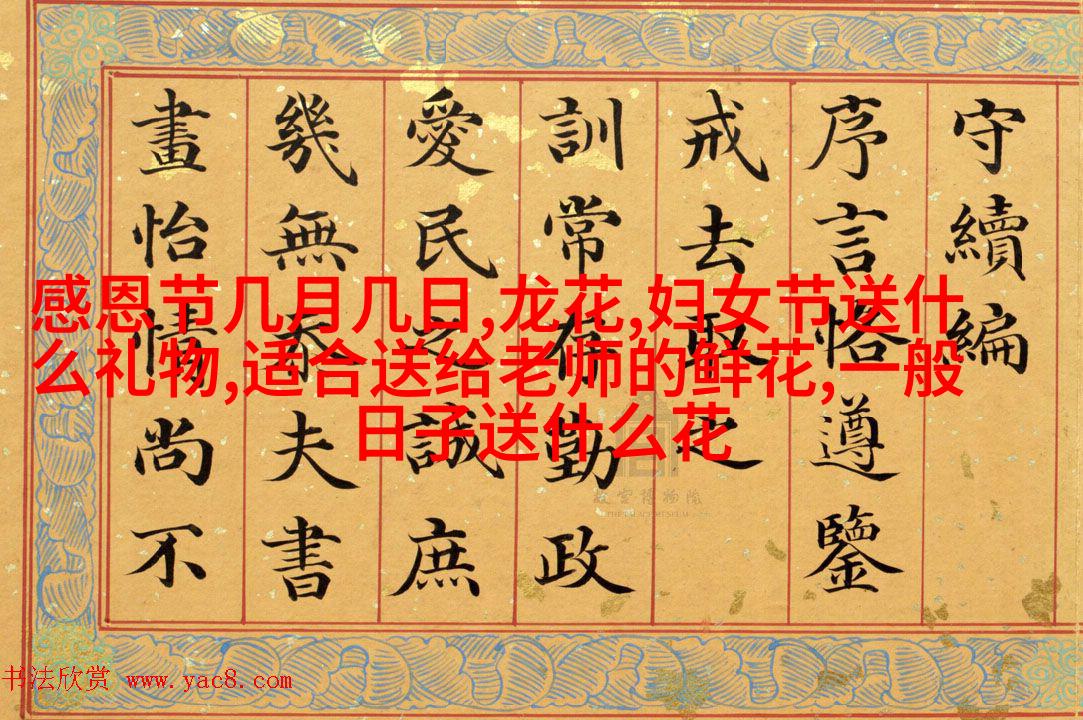 守續編
序言恪遵鑒
戒去取之
訓常存勤政
愛民之誠庶
幾無忝夫書
畫怡情尚不
感恩节几月几日,龙花,妇女节送什
么礼物,适合送给老师的鲜花,一般
日子送什么花
故宫博物院
THE PALACE MUSEUM
书法欣赏 www.yac8.com